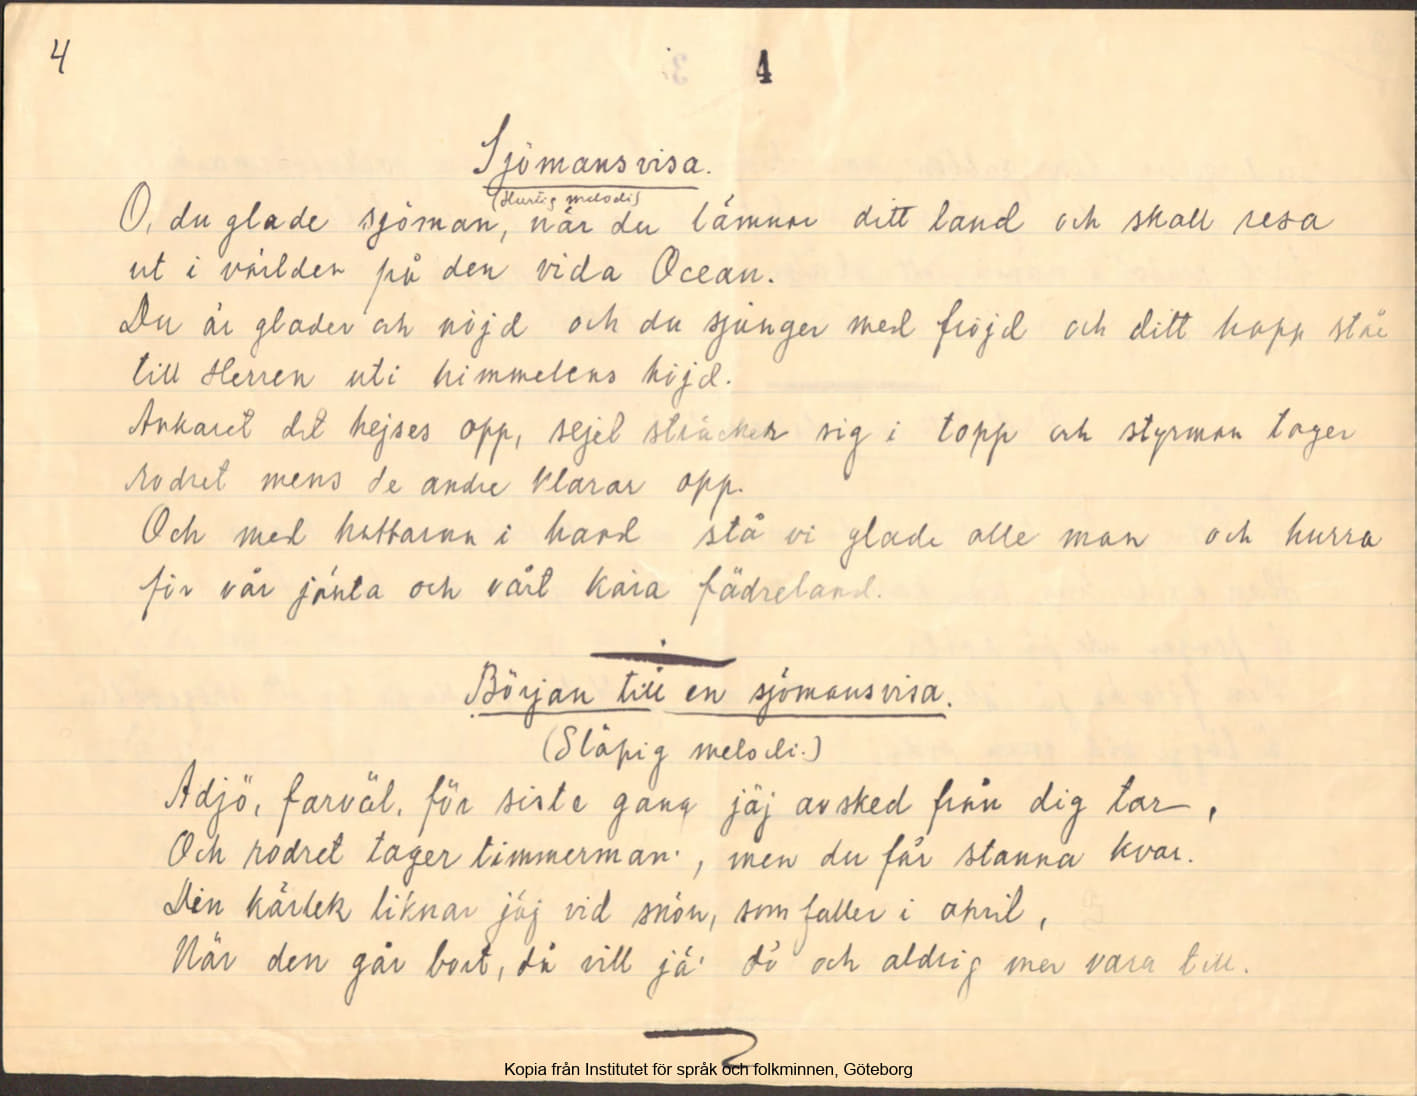 4 4
Sjömansvisa.
(Hurtig melodi)
O, du glade sjöman, när du lämnar ditt land och skall resa
ut i världen på den vida Ocean.
Du är glader och nöjd och du sjunger med fröjd och ditt hopp står
till Herren uti himmelens höjd.
Ankaret det hejses opp, sejel sträcker sig i topp och styrman tager
rodret mens de andre klarar opp.
Och med hattarna i hand stå vi glade alle man och hurra
för vår jänta och vårt kära fädreland.
Början till en sjömansvisa.
(Släpig melodi.)
Adjö, farväl, för siste gang jäj avsked från dig tar,
Och rodret tager timmerman', men du får stanna kvar.
Din kärlek liknar jäj vid snön, som faller i april,
När den går bort, då vill jä' dö och aldrig mer vara till.
Kopia från Institutet för språk och folkminnen, Göteborg